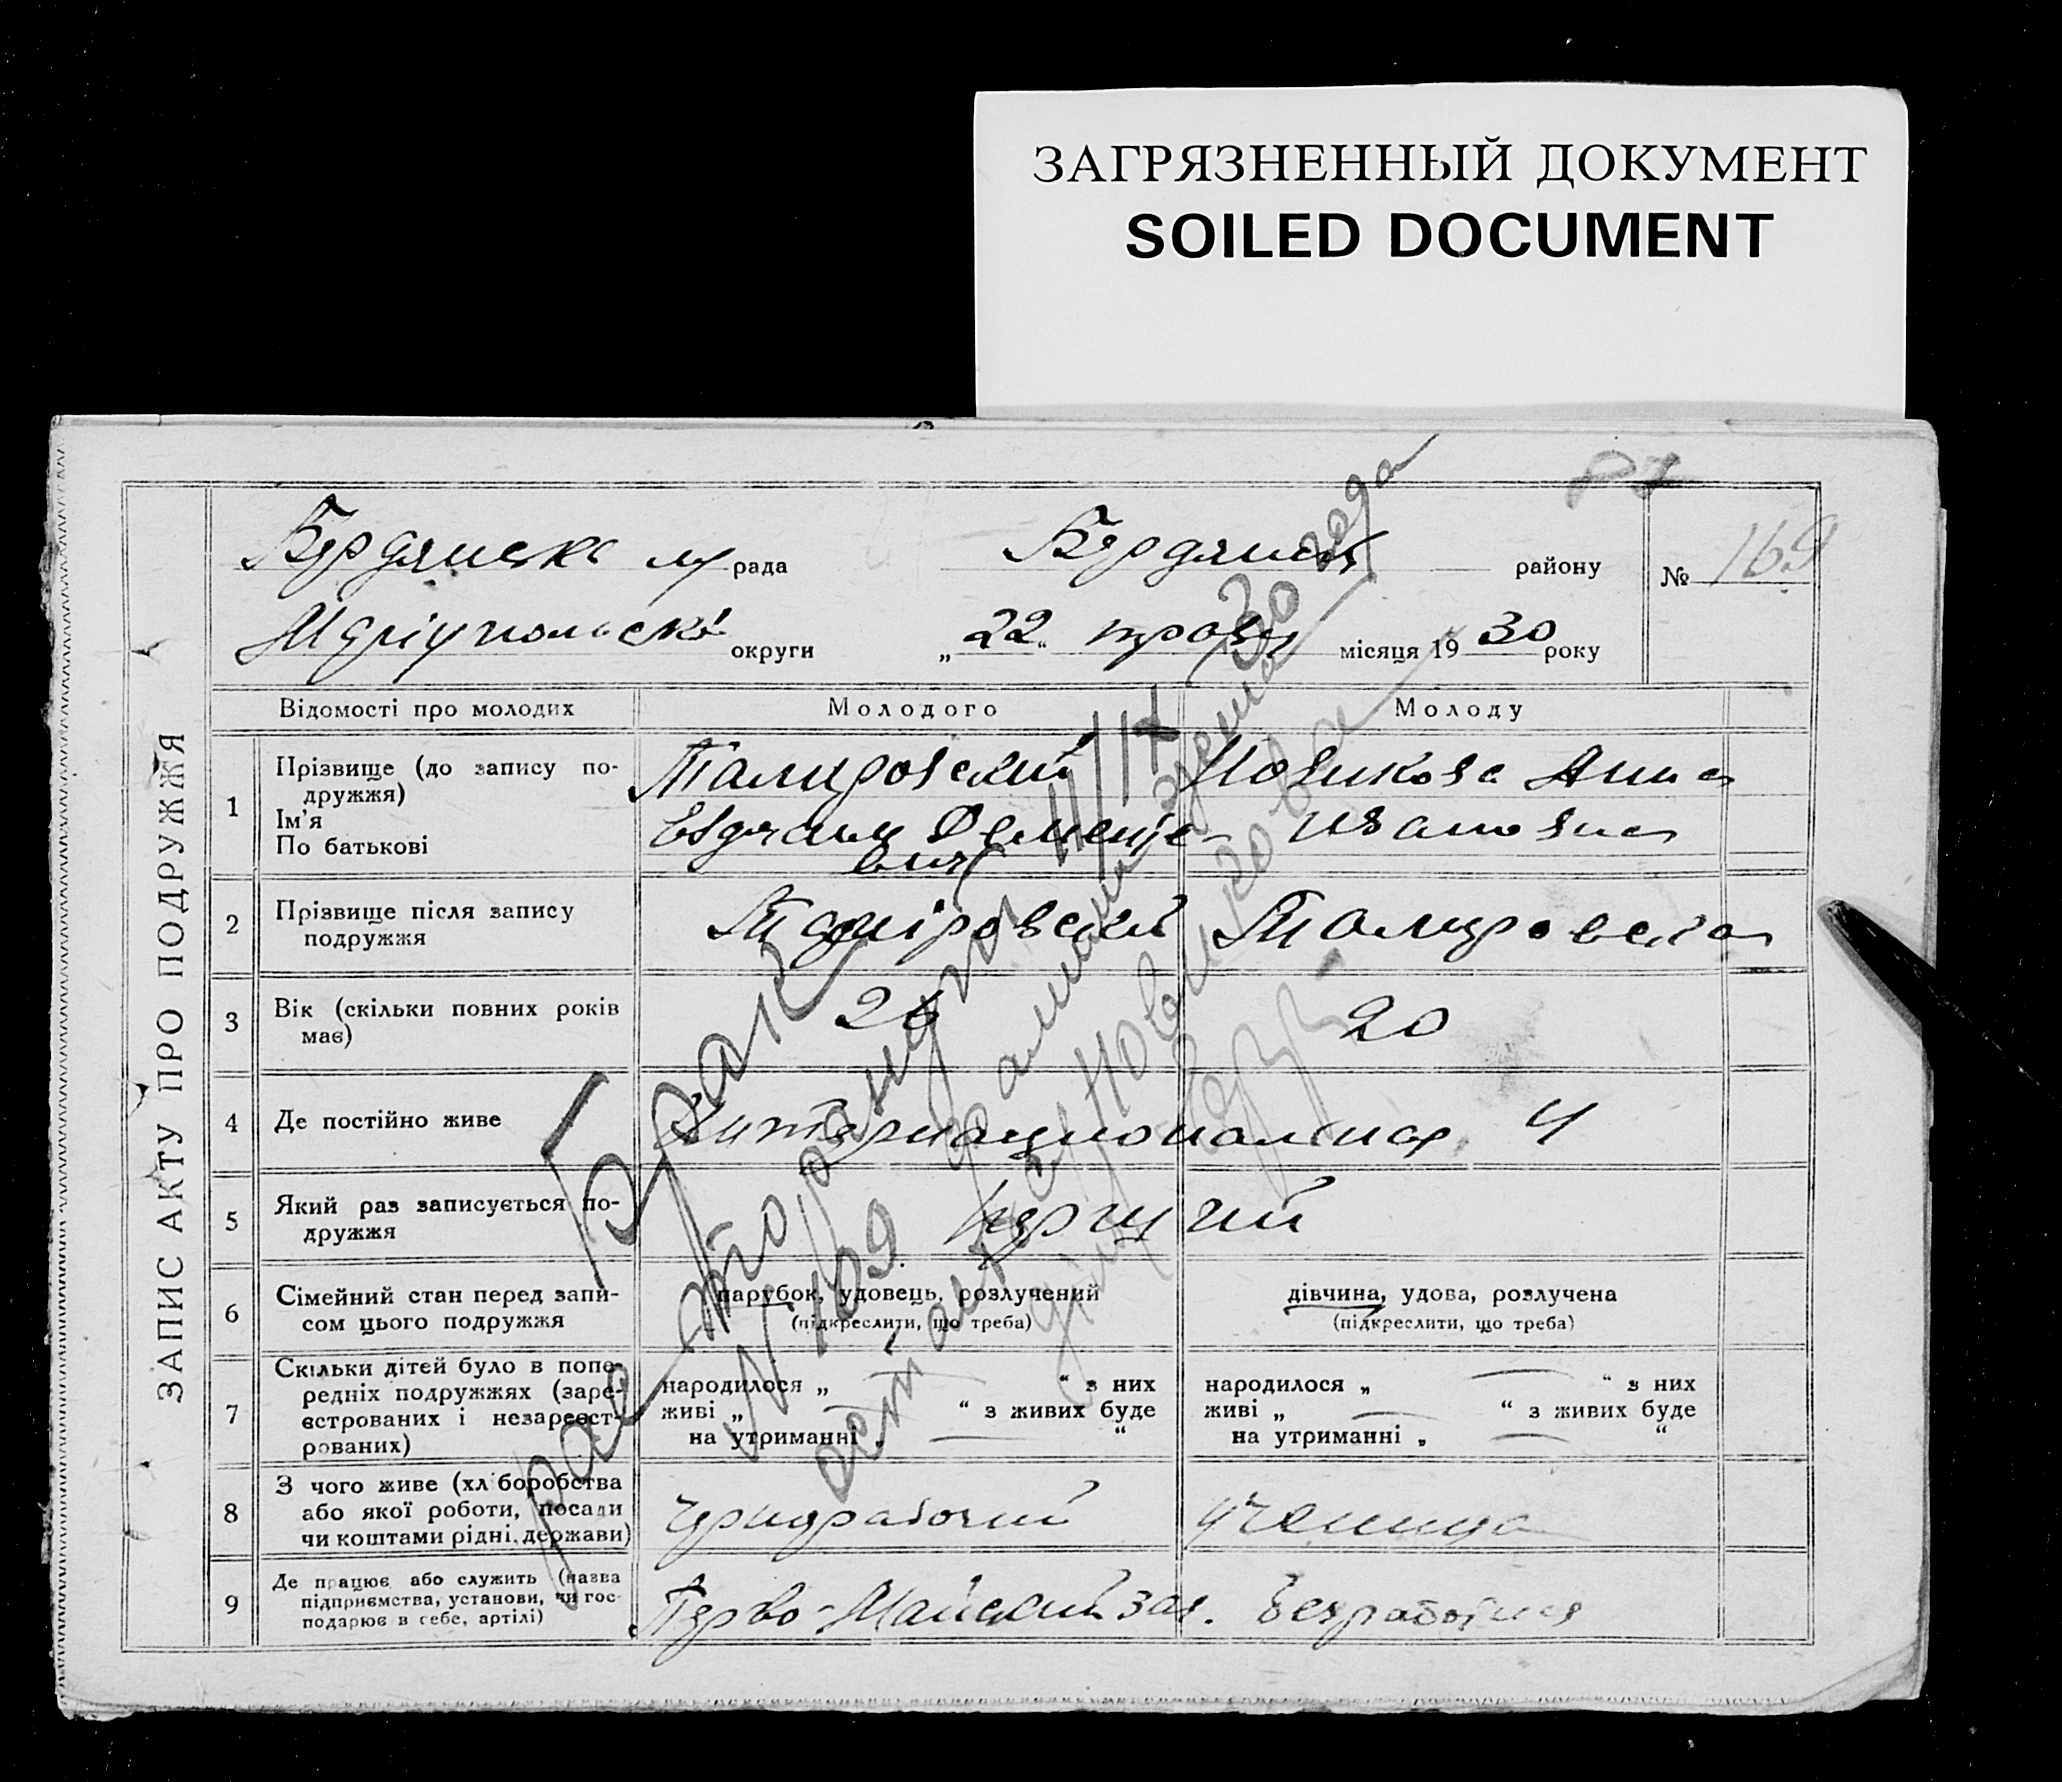 ЗАГРЯЗНЕННЫЙ ДОКУМЕНТ
SOILED DOCUMENT
ЗАПИС АКТУ ПРО ПОДРУЖЖЯ
Бердянська м/ рада Бердянськ району № 169
Маріупольскі округи „22“ травня місяця 1930 року
Відомості про молодих Молодого Молоду
1 Прізвище (до запису по-
дружжя)
Ім'я
По батькові
Новикова Анна
Дементье-
вич
Ивановна
2 Прізвище після запису
подружжя
3 Вік (скільки повних років
має)
26 20
4 Де постійно живе Интернациональная 4
5 Який раз записується по-
дружжя
перший
6 Сімейний стан перед запи-
сом цього подружжя
парубок, удовець, розлучений
(підкреслити, що треба)
дівчина, удова, розлучена
(підкреслити, що треба)
7 Скільки дітей було в попе-
редніх подружжях (заре-
єстрованих і незареєст-
рованих)
народилося „ “ з них
живі „ “ з живих буде
на утриманні „ “
народилося „ “ з них
живі „ “ з живих буде
на утриманні „ “
8 З чого живе (хліборобства
або якої роботи, посади
чи коштами рідні, держави)
чернорабочий ученица
9 Де працює або служить (назва
підприємства, установи, чи гос-
подарює в себе, артілі)
Перво-Майский зав. безработная
Брак
расторгнут 11/IX 30 года
№ 169 фамилии